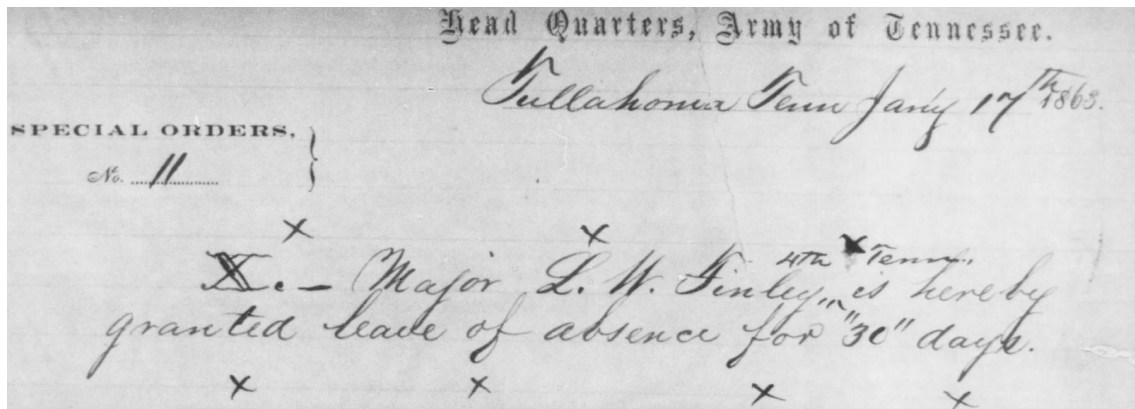 Head Quarters, Army of Tennessee.
Tullahoma Tenn Jan'y 17th 1863.
SPECIAL ORDERS,
No. 11
x x x
X.– Major L. W. Finley, 4th Tenn. is hereby
granted leave of absence for "30" days.
x x x x